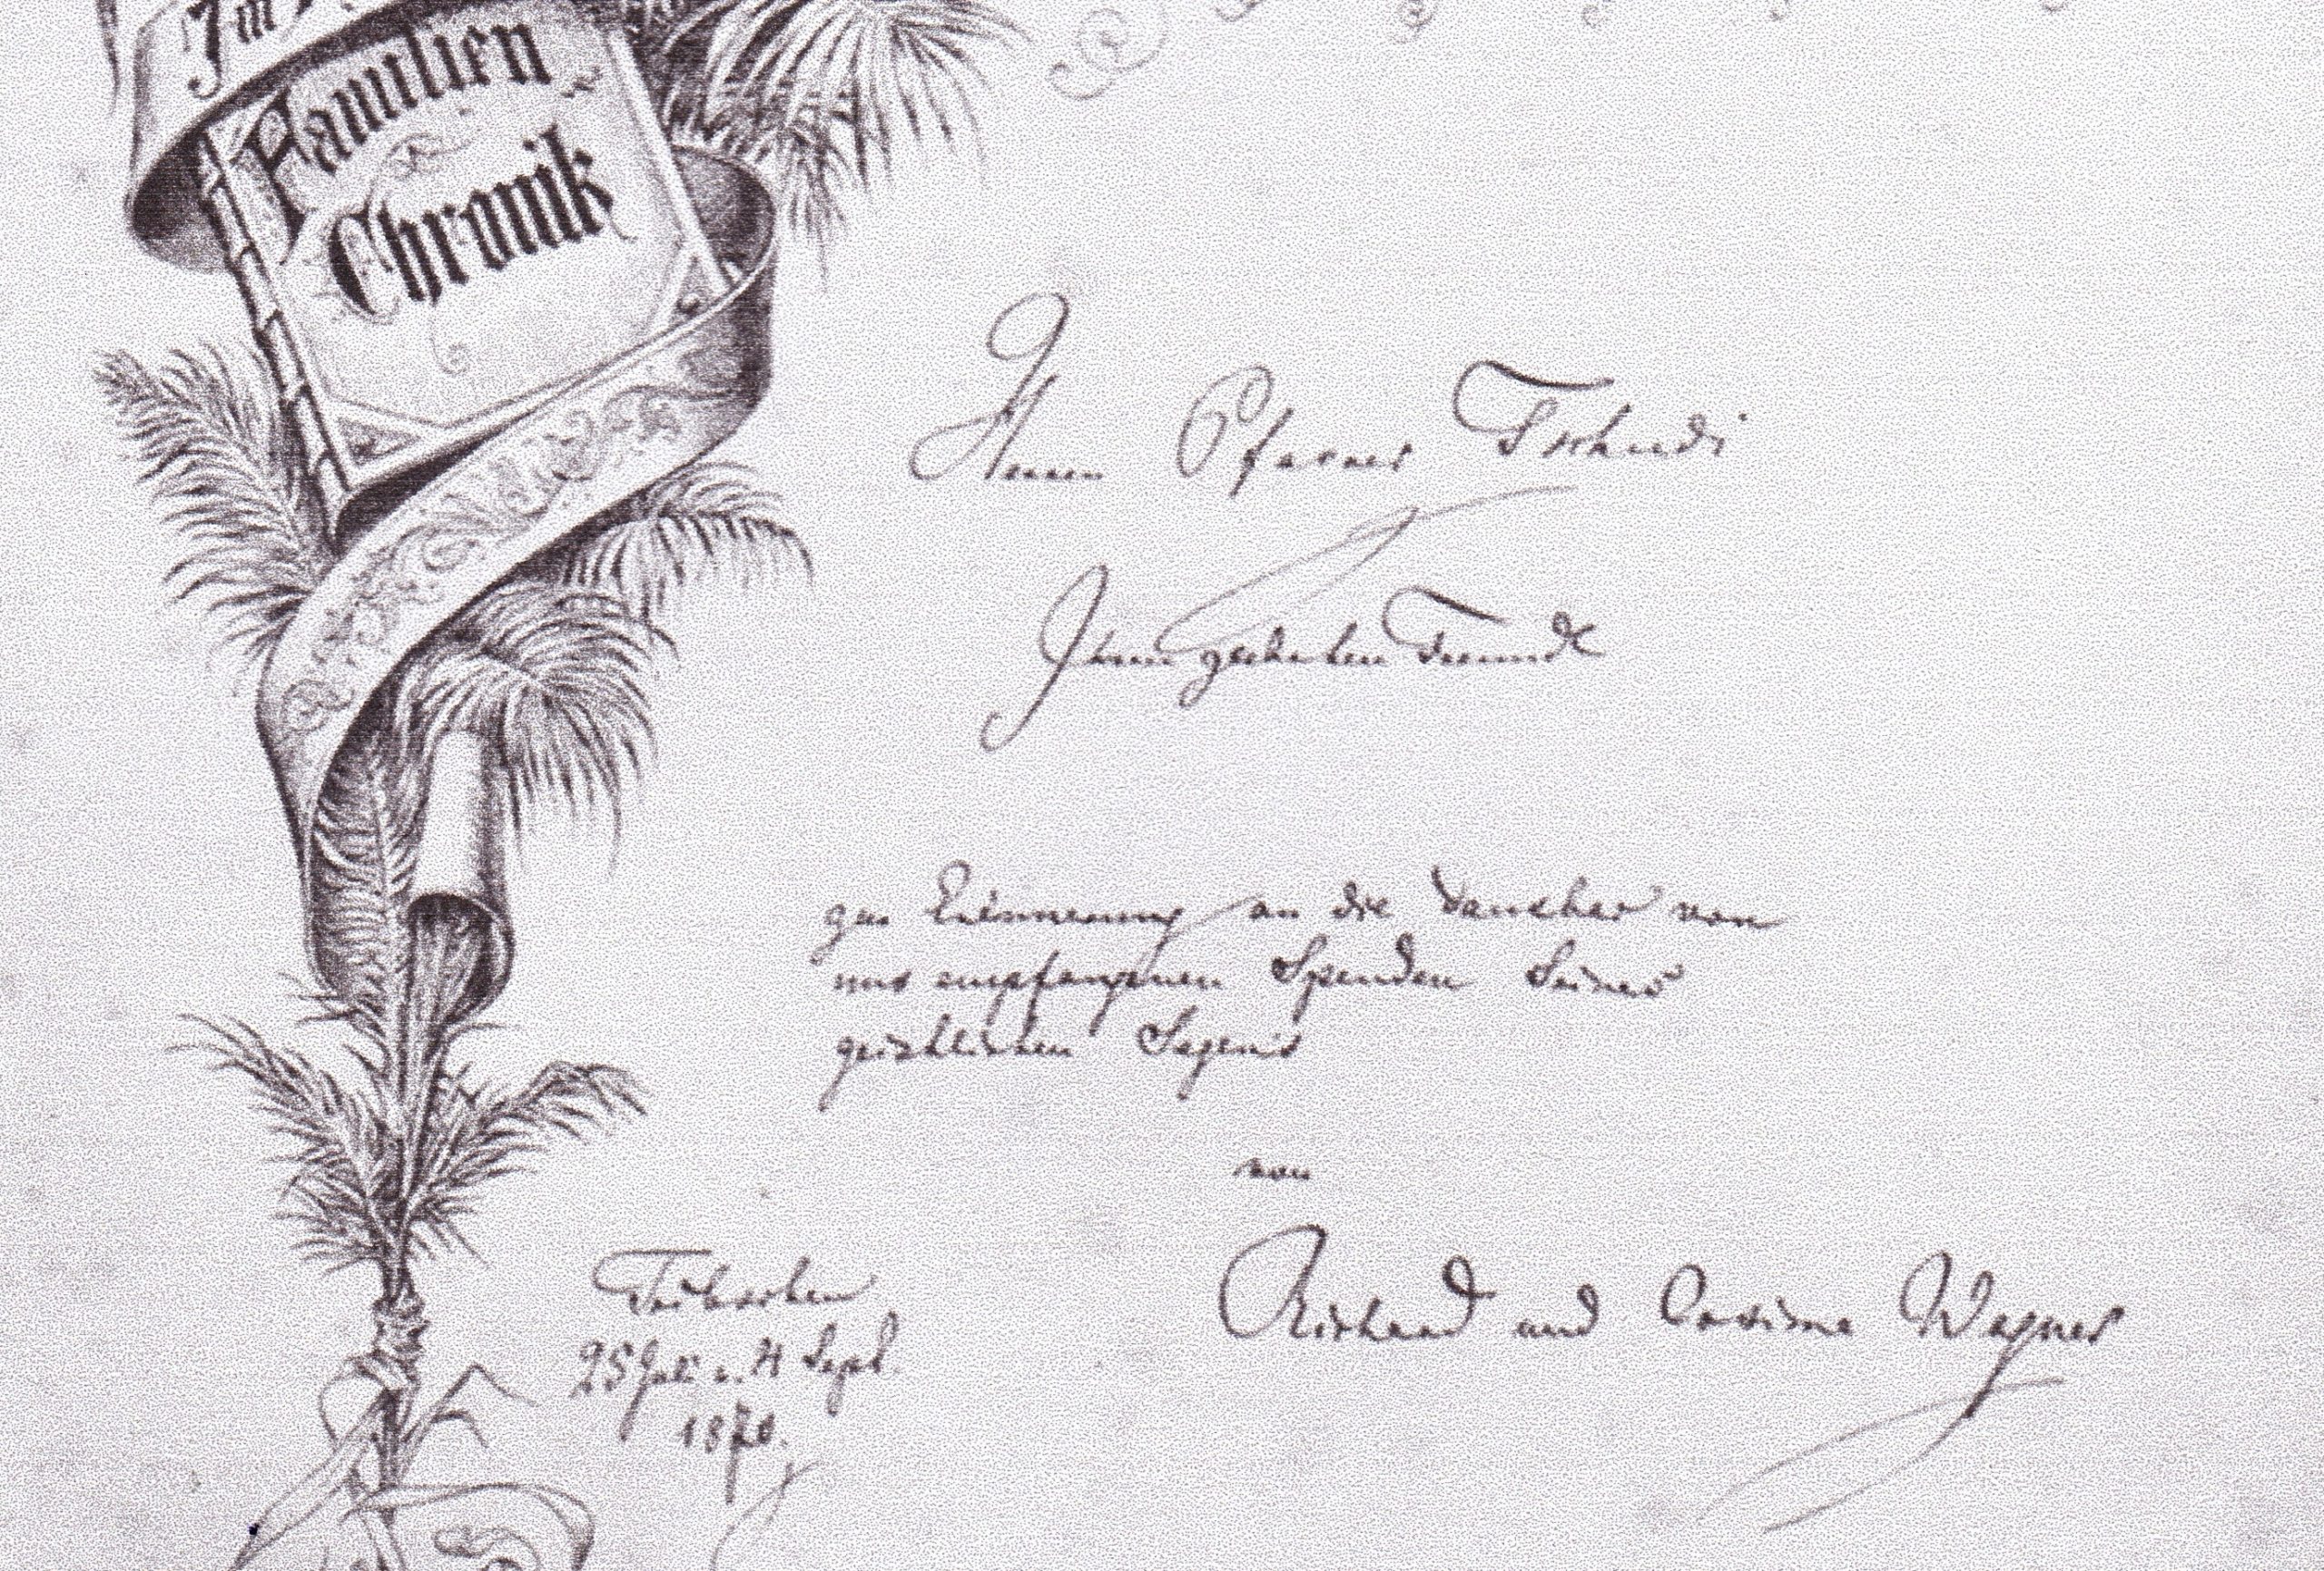 Familien
Chronik
Herrn Pfarrer Tschudi
Ihrem geehrten Freunde
zur Erinnerung an die dankbar von
uns empfangenen Spenden Seines
geistlichen Segens
von
Richard und Cosima Wagner
Tribschen
25 Juli u. 4 Sept.
1870.